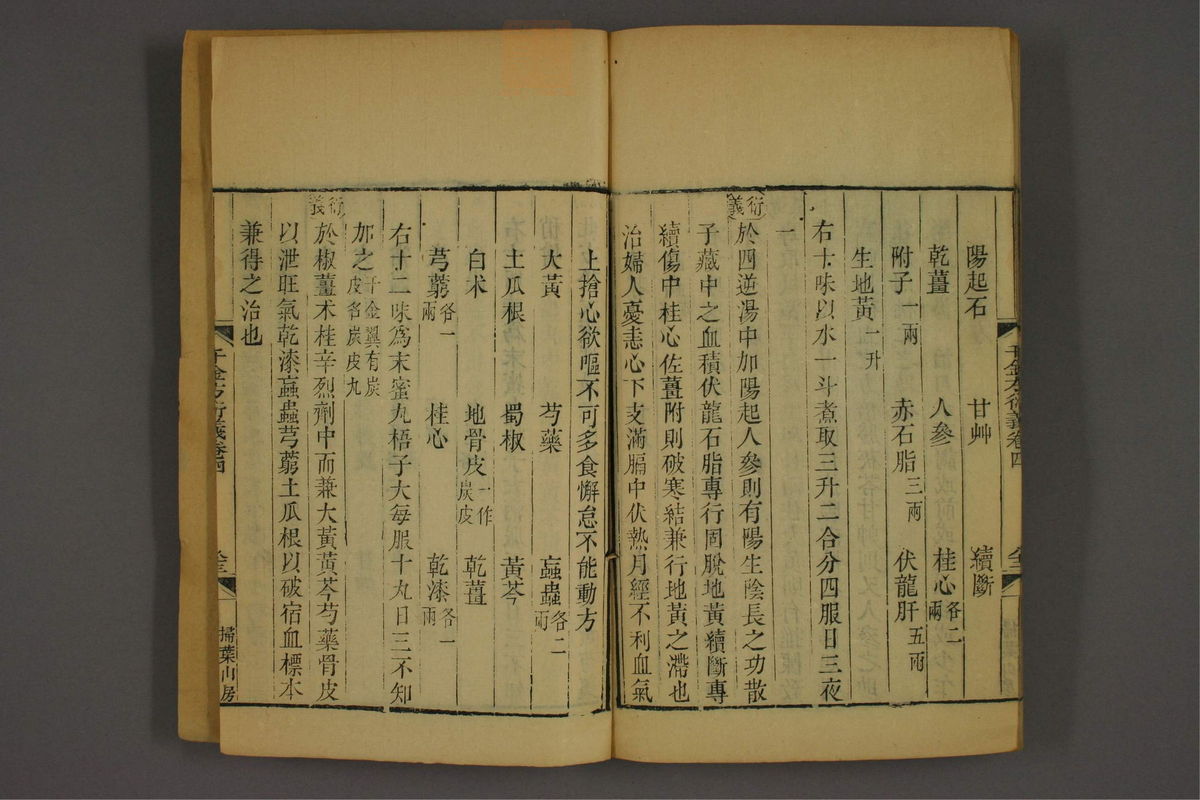 陽起石 甘艸 續斷
乾薑 人參 桂心各二兩
附子一兩 赤石脂三兩 伏龍肝五兩
生地黃一升
右十味以水一斗煮取三升二合分四服日三夜
一
衍義 於四逆湯中加陽起人參則有陽生陰長之功散
子藏中之血積伏龍石脂專行固脫地黃續斷專
續傷中桂心佐薑附則破寒結兼行地黃之滯也
治婦人憂恚心下支滿膈中伏熱月經不利血氣
上搶心欲嘔不可多食懈怠不能動方
大黃 芍藥 蝱蟲各二兩
土瓜根 蜀椒 黃芩
白术 地骨皮一作炭皮 乾薑
芎藭各一兩 桂心 乾漆各一兩
右十二味爲末蜜丸梧子大每服十丸日三不知
加之千金翼有炭皮名炭皮丸
衍義 於椒薑术桂辛烈劑中而兼大黃黃芩芍藥骨皮
以泄旺氣乾漆蝱蟲芎藭土瓜根以破宿血標本
兼得之治也
千金方衍義卷四
掃葉山房